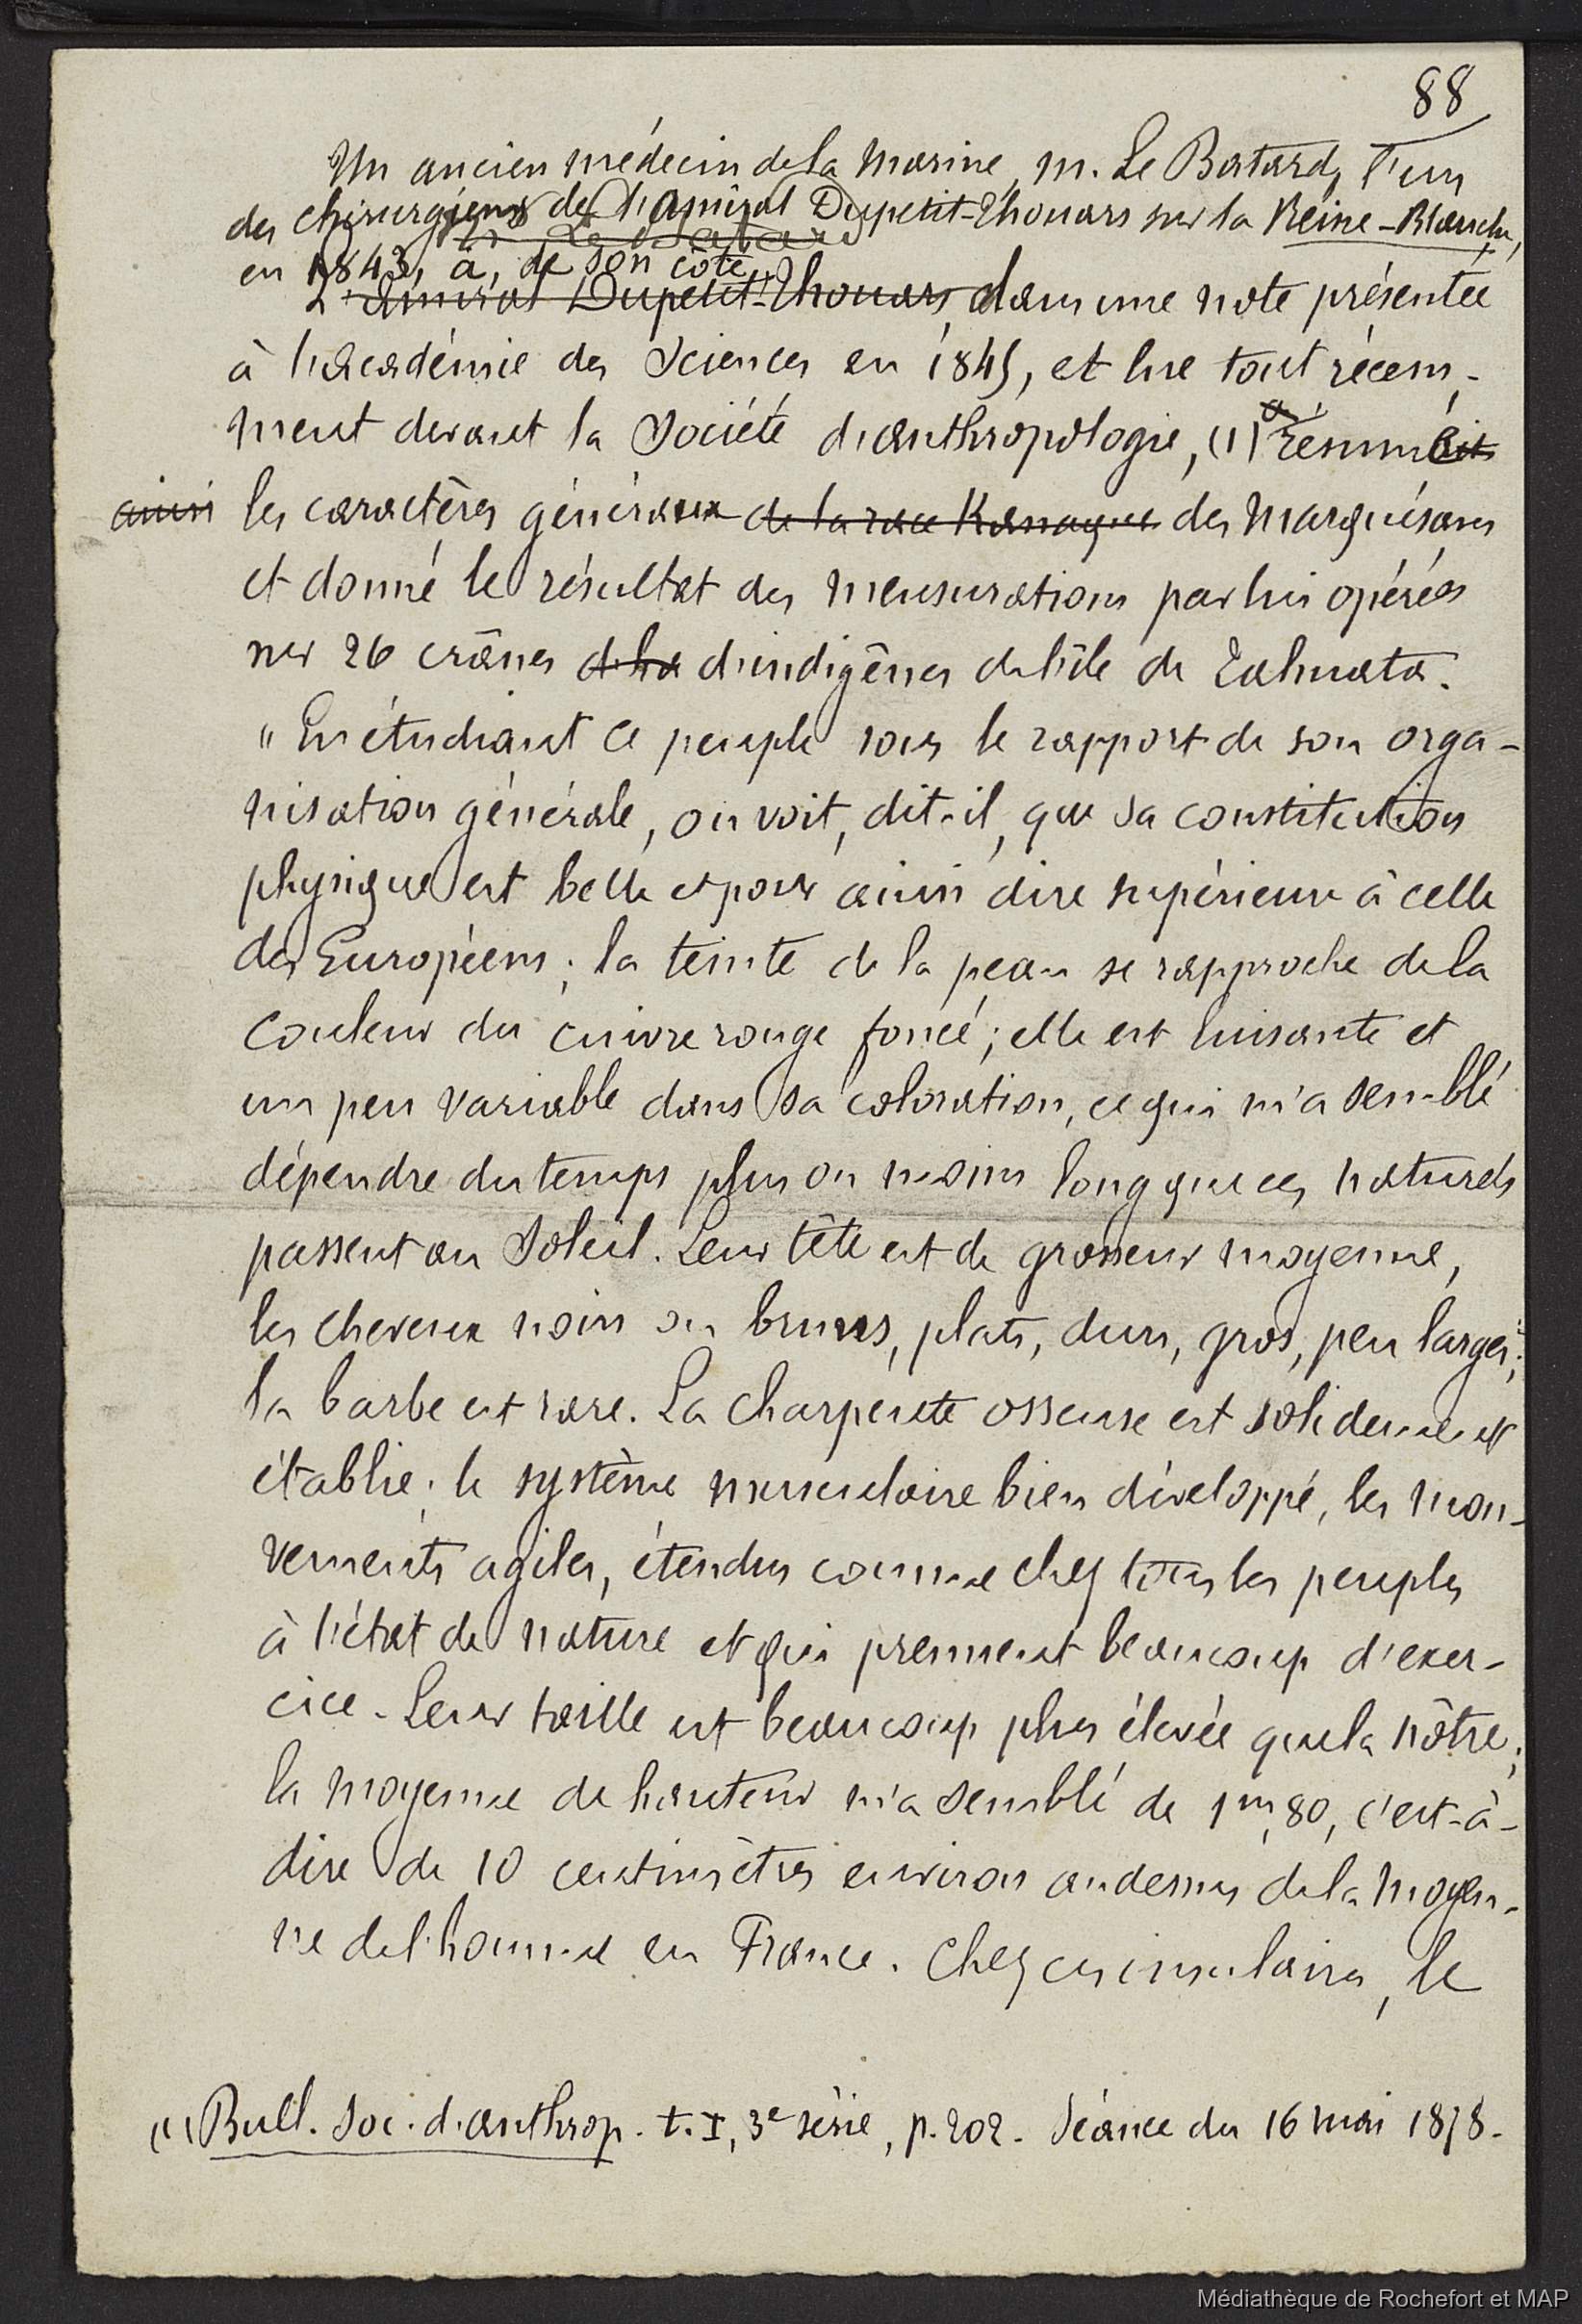 88
Un ancien médecin de la Marine, M. Le Batard, l'un
des chirurgiens de l'amiral Dupetit-Thouars sur la Reine-Blanche,
en 1843, a, de son côté,
L'amiral Dupetit-Thouars, dans une note présentée
à l'Académie des Sciences en 1845, et lue tout récem-
ment devant la Société d'anthropologie, (1) a résumé
ainsi les caractères généraux de la race Kanaque des Marquésans
et donné le résultat des mensurations par lui opérées
sur 26 crânes de la d'indigènes de l'île de Tahuata.
"En étudiant ce peuple sous le rapport de son orga-
nisation générale, on voit, dit-il, que sa constitution
physique est belle et pour ainsi dire supérieure à celle
des Européens ; la teinte de la peau se rapproche de la
couleur du cuivre rouge foncé ; elle est luisante et
un peu variable dans sa coloration, ce qui m'a semblé
dépendre du temps plus ou moins long que ces naturels
passent au Soleil. Leur tête est de grosseur moyenne,
les cheveux noirs ou bruns, plats, durs, gros, peu larges ;
la barbe est rare. La charpente osseuse est solidement
établie ; le système musculaire bien développé, les mou-
vements agiles, étendus comme chez tous les peuples
à l'état de nature et qui prennent beaucoup d'exer-
cice. Leur taille est beaucoup plus élevée que la nôtre ;
la moyenne de hauteur m'a semblé de 1m,80, c'est-à-
dire de 10 centimètres environ au dessus de la moyen-
ne de l'homme en France. Chez ces insulaires, le
(1) Bull. Soc. d'anthrop. t. I, 3e série, p. 202. Séance du 16 mai 1878.
Médiathèque de Rochefort et MAP